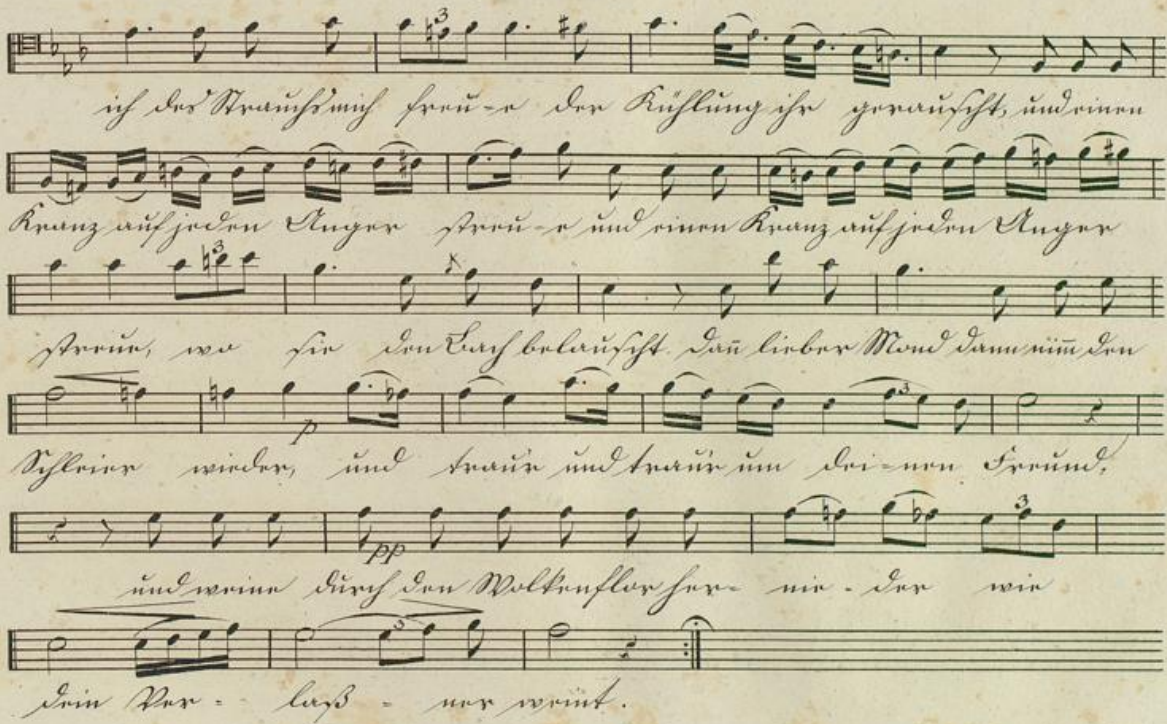 ich des Strauchs mich freu-e der Kühlung ihr gerauscht, und einen
Kranz auf jeden Anger streu-e und einen Kranz auf jeden Anger
streue, wo sie den Bach belauscht. Dañ lieber Mond dann nim̄ den
p
Schleier wieder, und traur und traur um dei=nen Freund,
pp
und weine durch den Wolkenflor her- nie-der wie
dein Ver-=laß=ner weint.